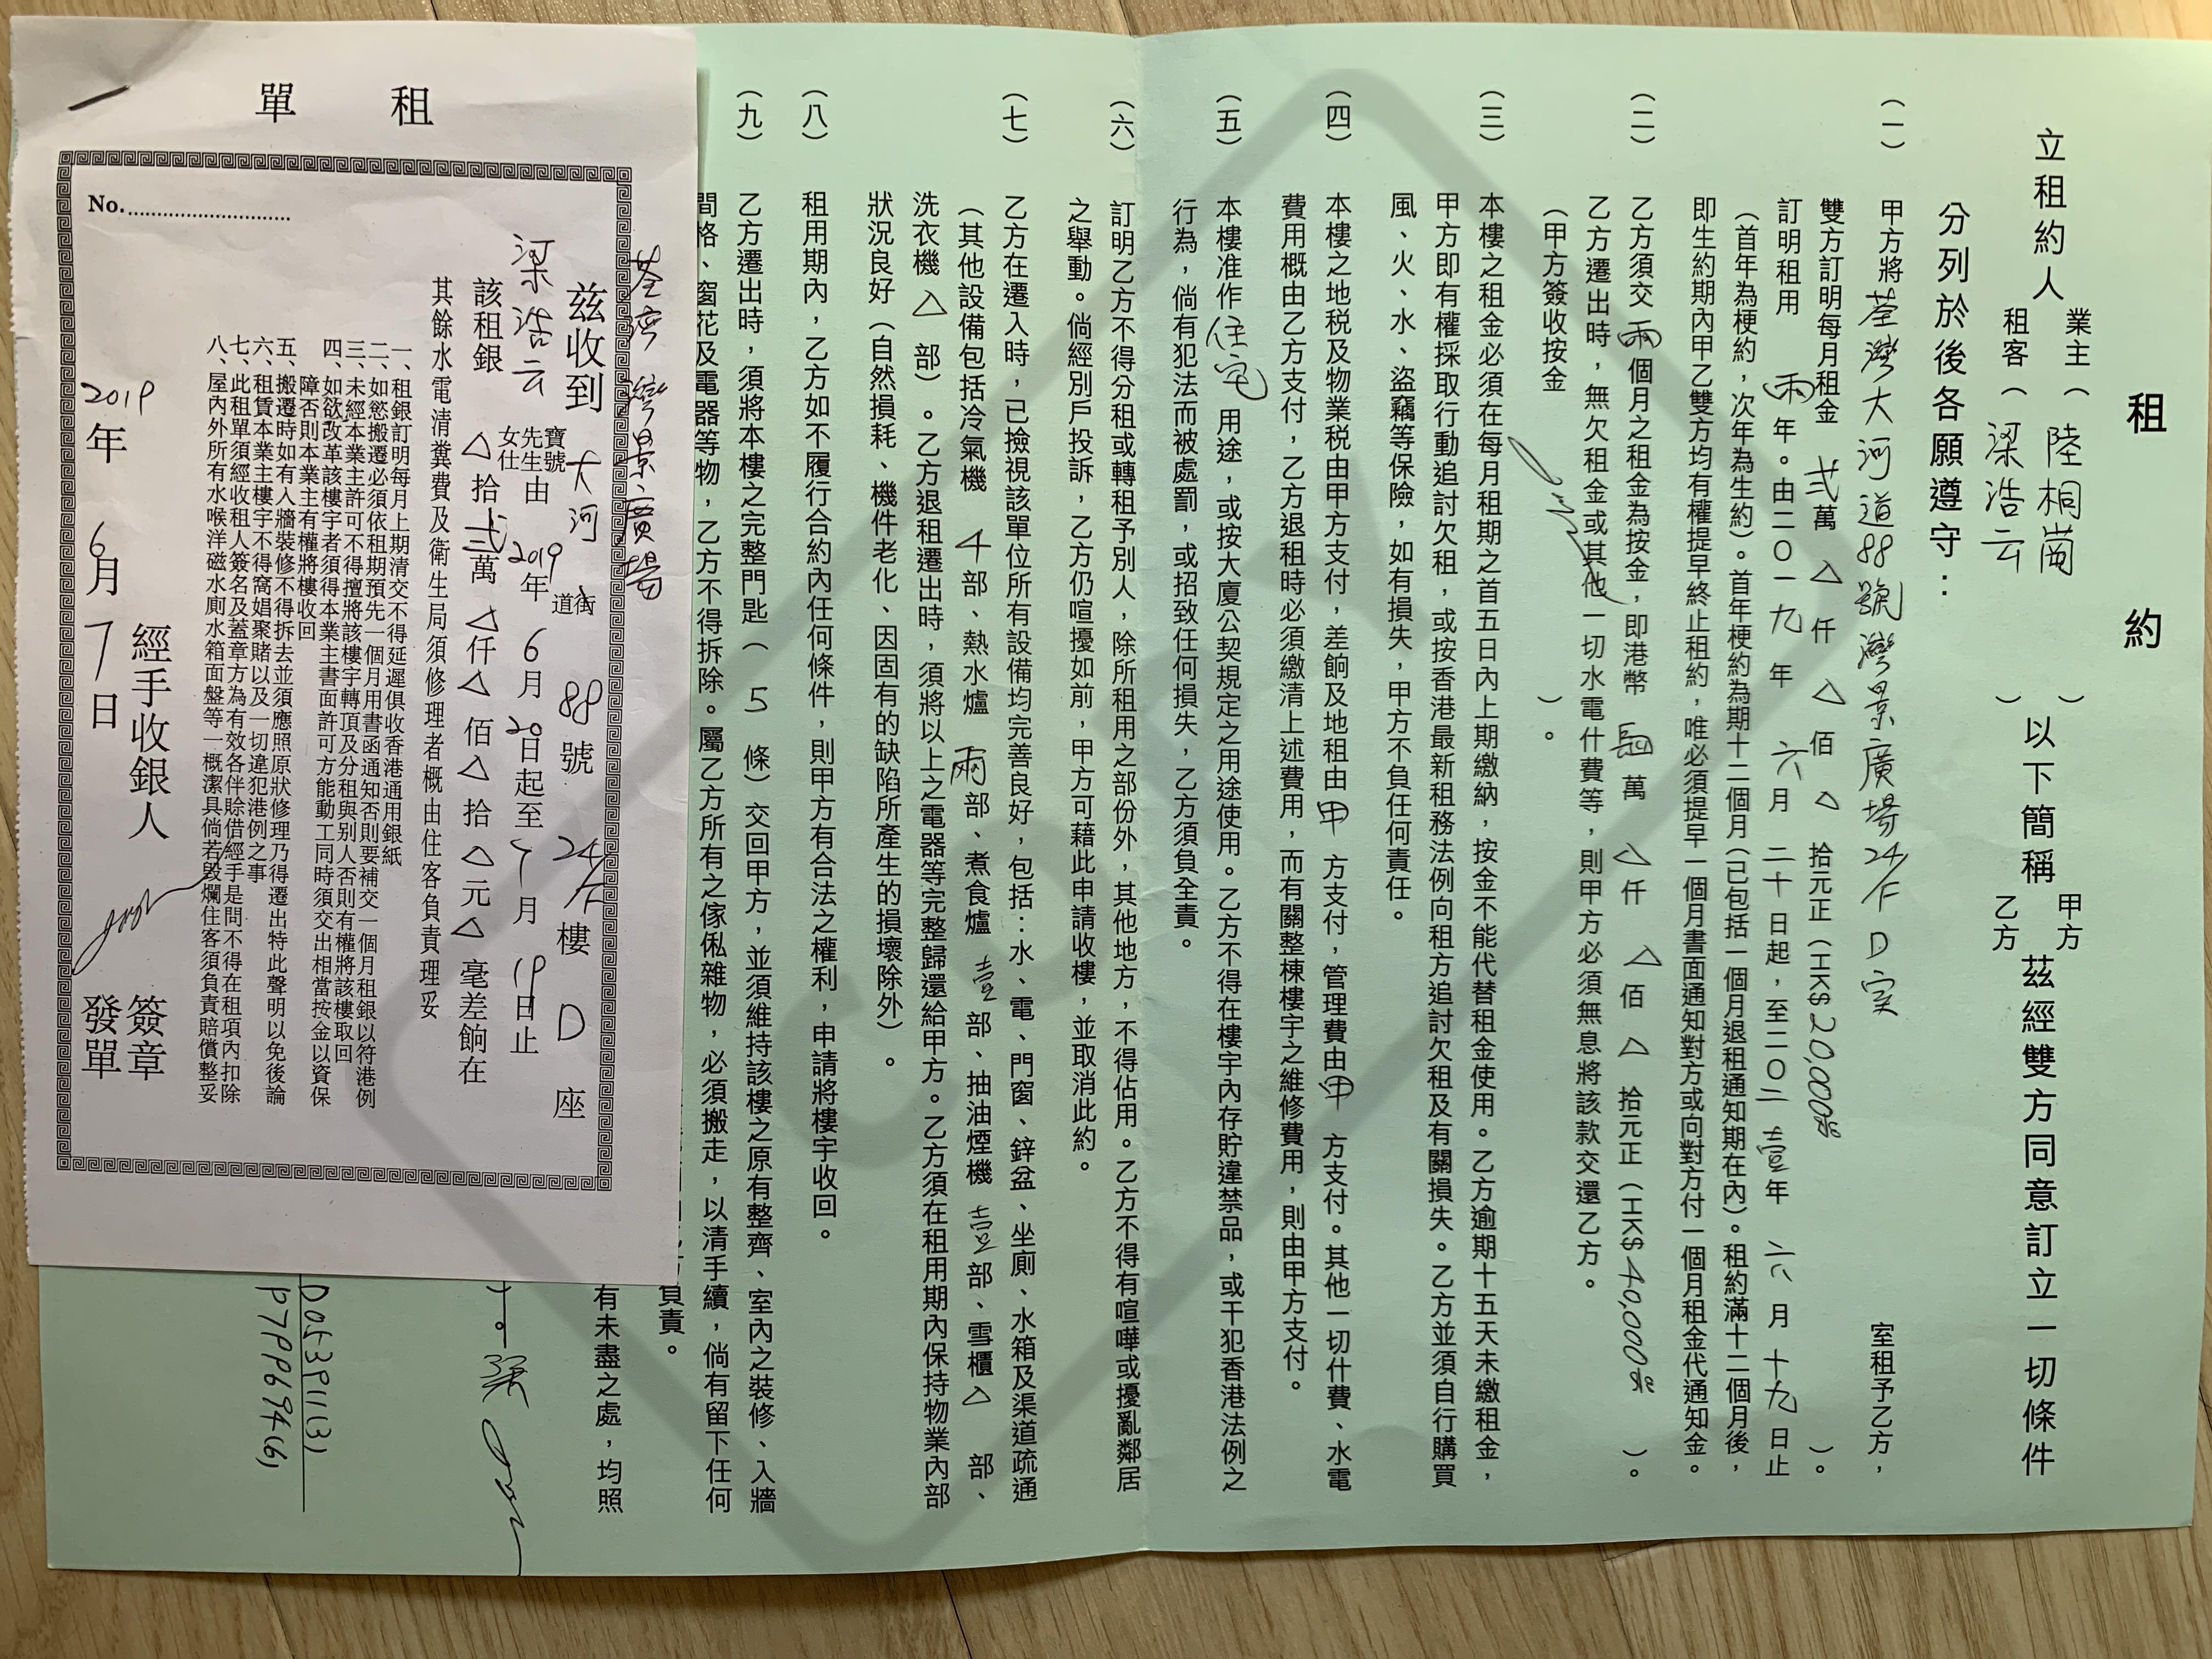 租約
立租約人
業主（陸桐崗）
租客（梁浩云）
以下簡稱
甲方
乙方
茲經雙方同意訂立一切條件
分列於後各願遵守：
（一）
甲方將荃灣大河道88號灣景廣場24/F D室 室租予乙方，
雙方訂明每月租金 弍萬△仟△佰△拾元正（HK$20,000）。
訂明租用 兩年。由二０一九年六月二十日起，至二０二壹年六月十九日止
（首年為梗約，次年為生約）。首年梗約為期十二個月（已包括一個月退租通知期在內）。租約滿十二個月後，
即生約期內甲乙雙方均有權提早終止租約，唯必須提早一個月書面通知對方或向對方付一個月租金代通知金。
（二）
乙方須交兩個月之租金為按金，即港幣 萬△仟△佰△拾元正（HK$40,000）。
乙方遷出時，無欠租金或其他一切水電什費等，則甲方必須無息將該款交還乙方。
（甲方簽收按金 ）。
（三）
本樓之租金必須在每月租期之首五日內上期繳納，按金不能代替租金使用。乙方逾期十五天未繳租金，
甲方即有權採取行動追討欠租，或按香港最新租務法例向租方追討欠租及有關損失。乙方並須自行購買
風、火、水、盜竊等保險，如有損失，甲方不負任何責任。
（四）
本樓之地税及物業税由甲方支付，差餉及地租由甲方支付，管理費由甲方支付。其他一切什費、水電
費用概由乙方支付，乙方退租時必須繳清上述費用，而有關整棟樓宇之維修費用，則由甲方支付。
（五）
本樓准作住宅用途，或按大廈公契規定之用途使用。乙方不得在樓宇內存貯違禁品，或干犯香港法例之
行為，倘有犯法而被處罰，或招致任何損失，乙方須負全責。
（六）
訂明乙方不得分租或轉租予別人，除所租用之部份外，其他地方，不得佔用。乙方不得有喧嘩或擾亂鄰居
之舉動。倘經別戶投訴，乙方仍喧擾如前，甲方可藉此申請收樓，並取消此約。
（七）
乙方在遷入時，已撿視該單位所有設備均完善良好，包括：水、電、門窗、鋅盆、坐廁、水箱及渠道疏通
（其他設備包括冷氣機 4部、熱水爐 兩部、煮食爐 壹部、抽油煙機 壹部、雪櫃△部、
洗衣機△部）。乙方退租遷出時，須將以上之電器等完整歸還給甲方。乙方須在租用期內保持物業內部
狀況良好（自然損耗、機件老化、因固有的缺陷所產生的損壞除外）。
（八）
租用期內，乙方如不履行合約內任何條件，則甲方有合法之權利，申請將樓宇收回。
（九）
乙方遷出時，須將本樓之完整門匙（5條）交回甲方，並須維持該樓之原有整齊、室內之裝修、入牆
間格、窗花及電器等物，乙方不得拆除。屬乙方所有之傢俬雜物，必須搬走，以清手續，倘有留下任何
負責。
有未盡之處，均照
COPY
租單
No.
荃灣 灣景廣場
茲收到 大河 街道 88號 24/F樓 D座
梁浩云 寶號 先生 女仕 由2019年6月20日起至7月19日止
該租銀△拾弍萬△仟△佰△拾△元△毫差餉在
其餘水電清糞費及衛生局須修理者概由住客負責理妥
一、租銀訂明每月上期清交不得延遲俱收香港通用銀紙
二、如慾搬遷必須依租期預先一個月用書函通知否則要補交一個月租銀以符港例
三、未經本業主許可不得擅將該樓宇轉頂及分租與別人否則有權將該樓取回
四、如欲改革該樓宇者須得本業主書面許可方能動工同時須交出相當按金以資保
障否則本業主有權將樓收回
五、搬遷時如有入牆裝修不得拆去並須應照原狀修理乃得遷出特此聲明以免後論
六、租賃本業主樓宇不得窩娼聚賭以及一切違犯港例之事
七、此租單須經收租人簽名及蓋章方為有效各伴賒借經手是問不得在租項內扣除
八、屋內外所有水喉洋磁水廁水箱面盤等一概潔具倘若毀爛住客須負責賠償整妥
經手收銀人 簽章
2019年6月7日 發單